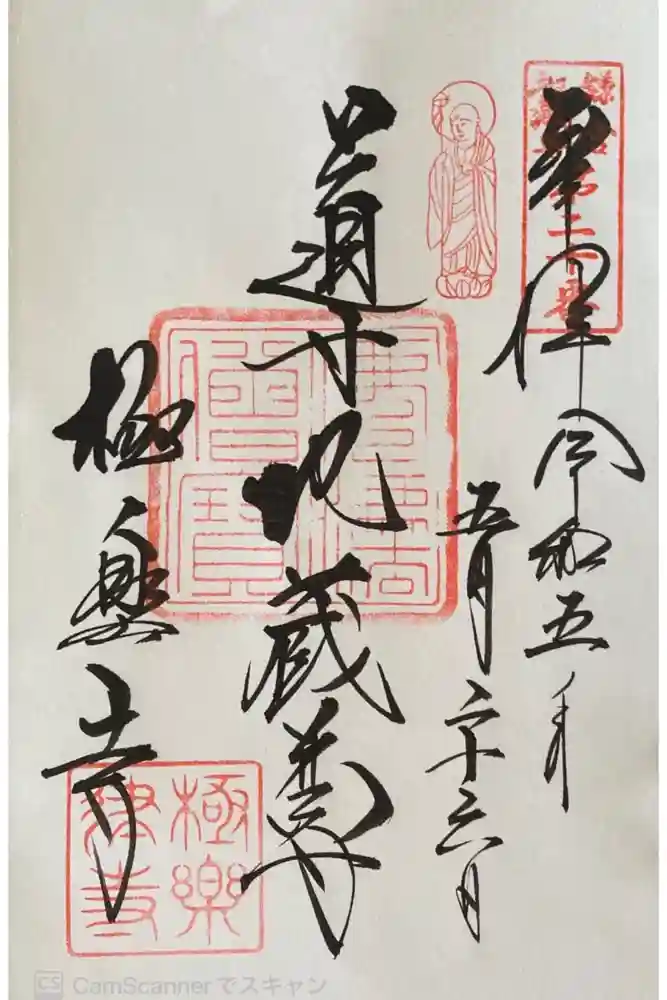 奉拝 令和五年
五月二十六日
導地蔵尊
極楽寺
極樂
律寺
CS CamScannerでスキャン